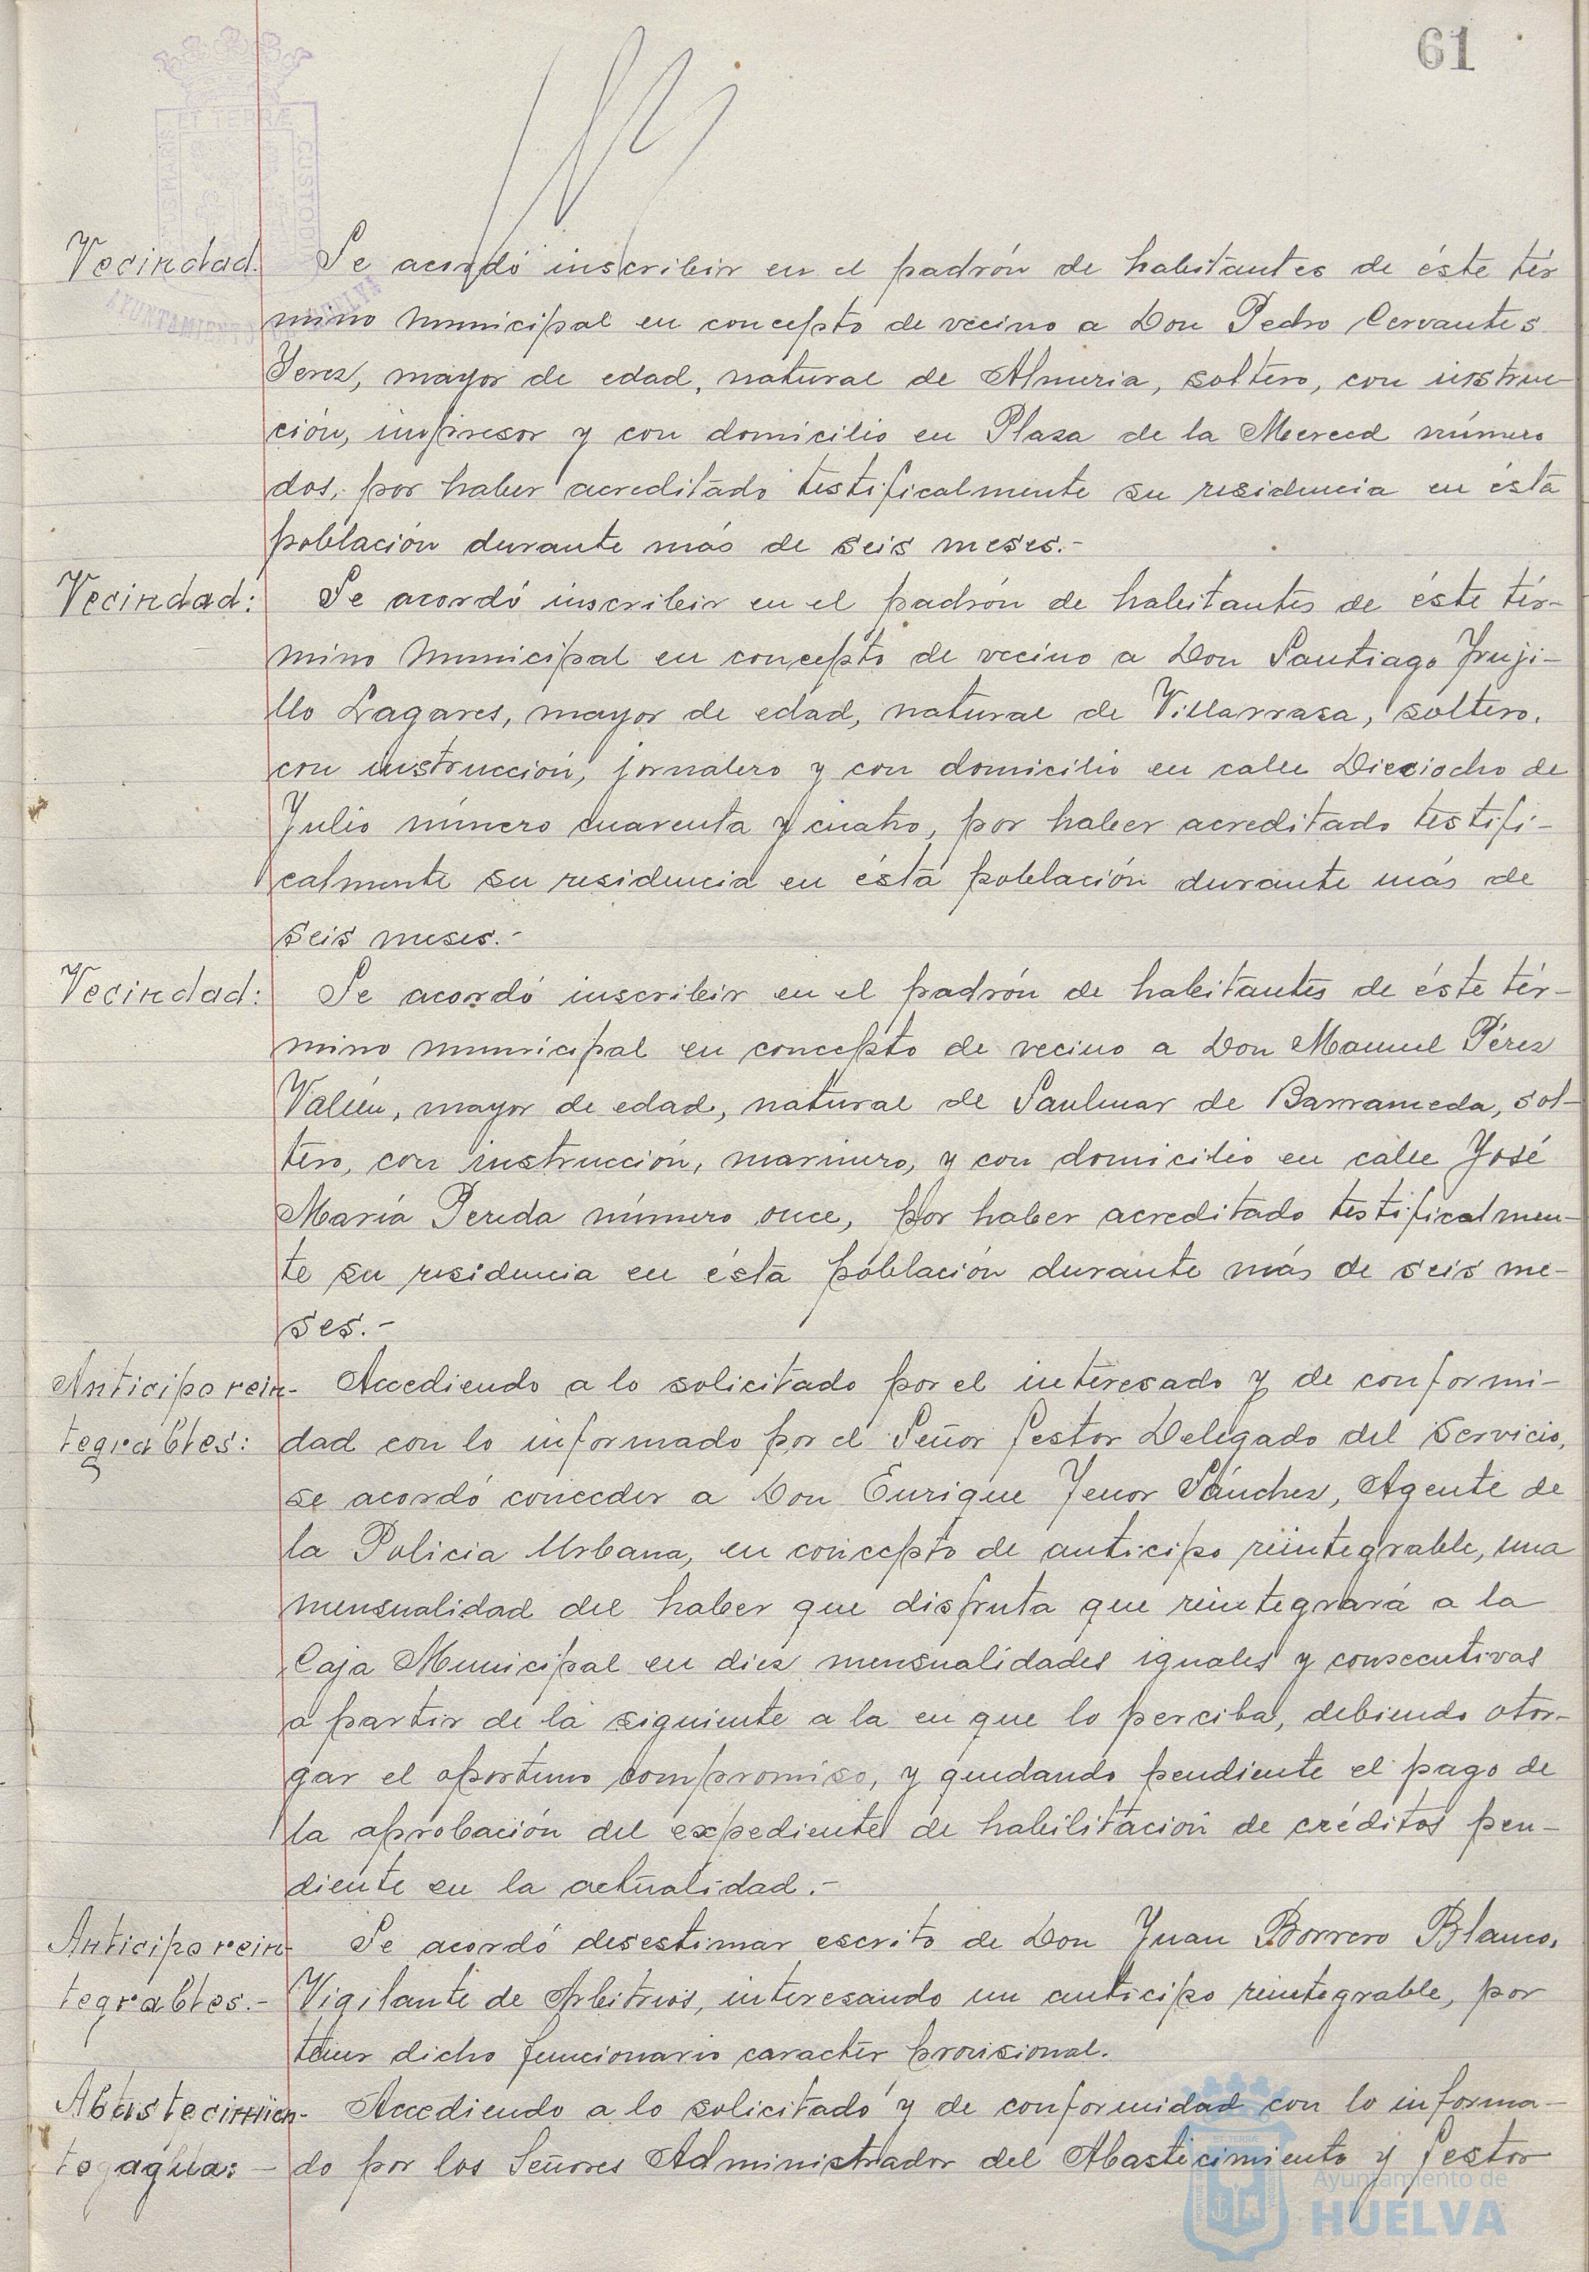 61
ET TERRÆ
CUSTODIA
AYUNTAMIENTO DE HUELVA
Vecindad. Se acordó inscribir en el padrón de habitantes de éste tér
mino municipal en concepto de vecino a Don Pedro Cervantes
Jerez, mayor de edad, natural de Almeria, soltero, con instruc-
ción, impresor y con domicilio en Plaza de la Merced número
dos, por haber acreditado testificalmente su residencia en ésta
población durante más de seis meses.-
Vecindad: Se acordó inscribir en el padrón de habitantes de éste tér-
mino municipal en concepto de vecino a Don Santiago Truji-
llo Lagares, mayor de edad, natural de Villarrasa, soltero,
con instrucción, jornalero y con domicilio en calle Dieciocho de
Julio número cuarenta y cuatro, por haber acreditado testifi-
calmente su residencia en ésta población durante más de
seis meses.-
Vecindad: Se acordó inscribir en el padrón de habitantes de éste tér-
mino municipal en concepto de vecino a Don Manuel Pérez
mayor de edad, natural de Sanlucar de Barrameda, sol-
tero, con instrucción, marinero, y con domicilio en calle José
María Pereda número once, por haber acreditado testificalmen-
te su residencia en ésta población durante más de seis me-
ses.-
Anticipo rein- Accediendo a lo solicitado por el interesado y de conformi-
tegrables: dad con lo informado por el Señor Gestor Delegado del Servicio,
se acordó conceder a Don Enrique Tenor Sánchez, Agente de
la Policia Urbana, en concepto de anticipo reintegrable, una
mensualidad del haber que disfruta que reintegrará a la
Caja Municipal en diez mensualidades iguales y consecutivas
a partir de la siguiente a la en que lo perciba, debiendo otor-
gar el oportuno compromiso, y quedando pendiente el pago de
la aprobación del expediente de habilitación de créditos pen-
diente en la actualidad.-
Anticipo rein- Se acordó desestimar escrito de Don Juan Borrero Blanco,
tegrables.- Vigilante de Arbitrios, interesando un anticipo reintegrable, por
tener dicho funcionario caracter provisional.
Abastecimien- Accediendo a lo solicitado y de conformidad con lo informa-
to agua: - do por los Señores Administrador del Abastecimiento y Gestor
Ayuntamiento de
HUELVA